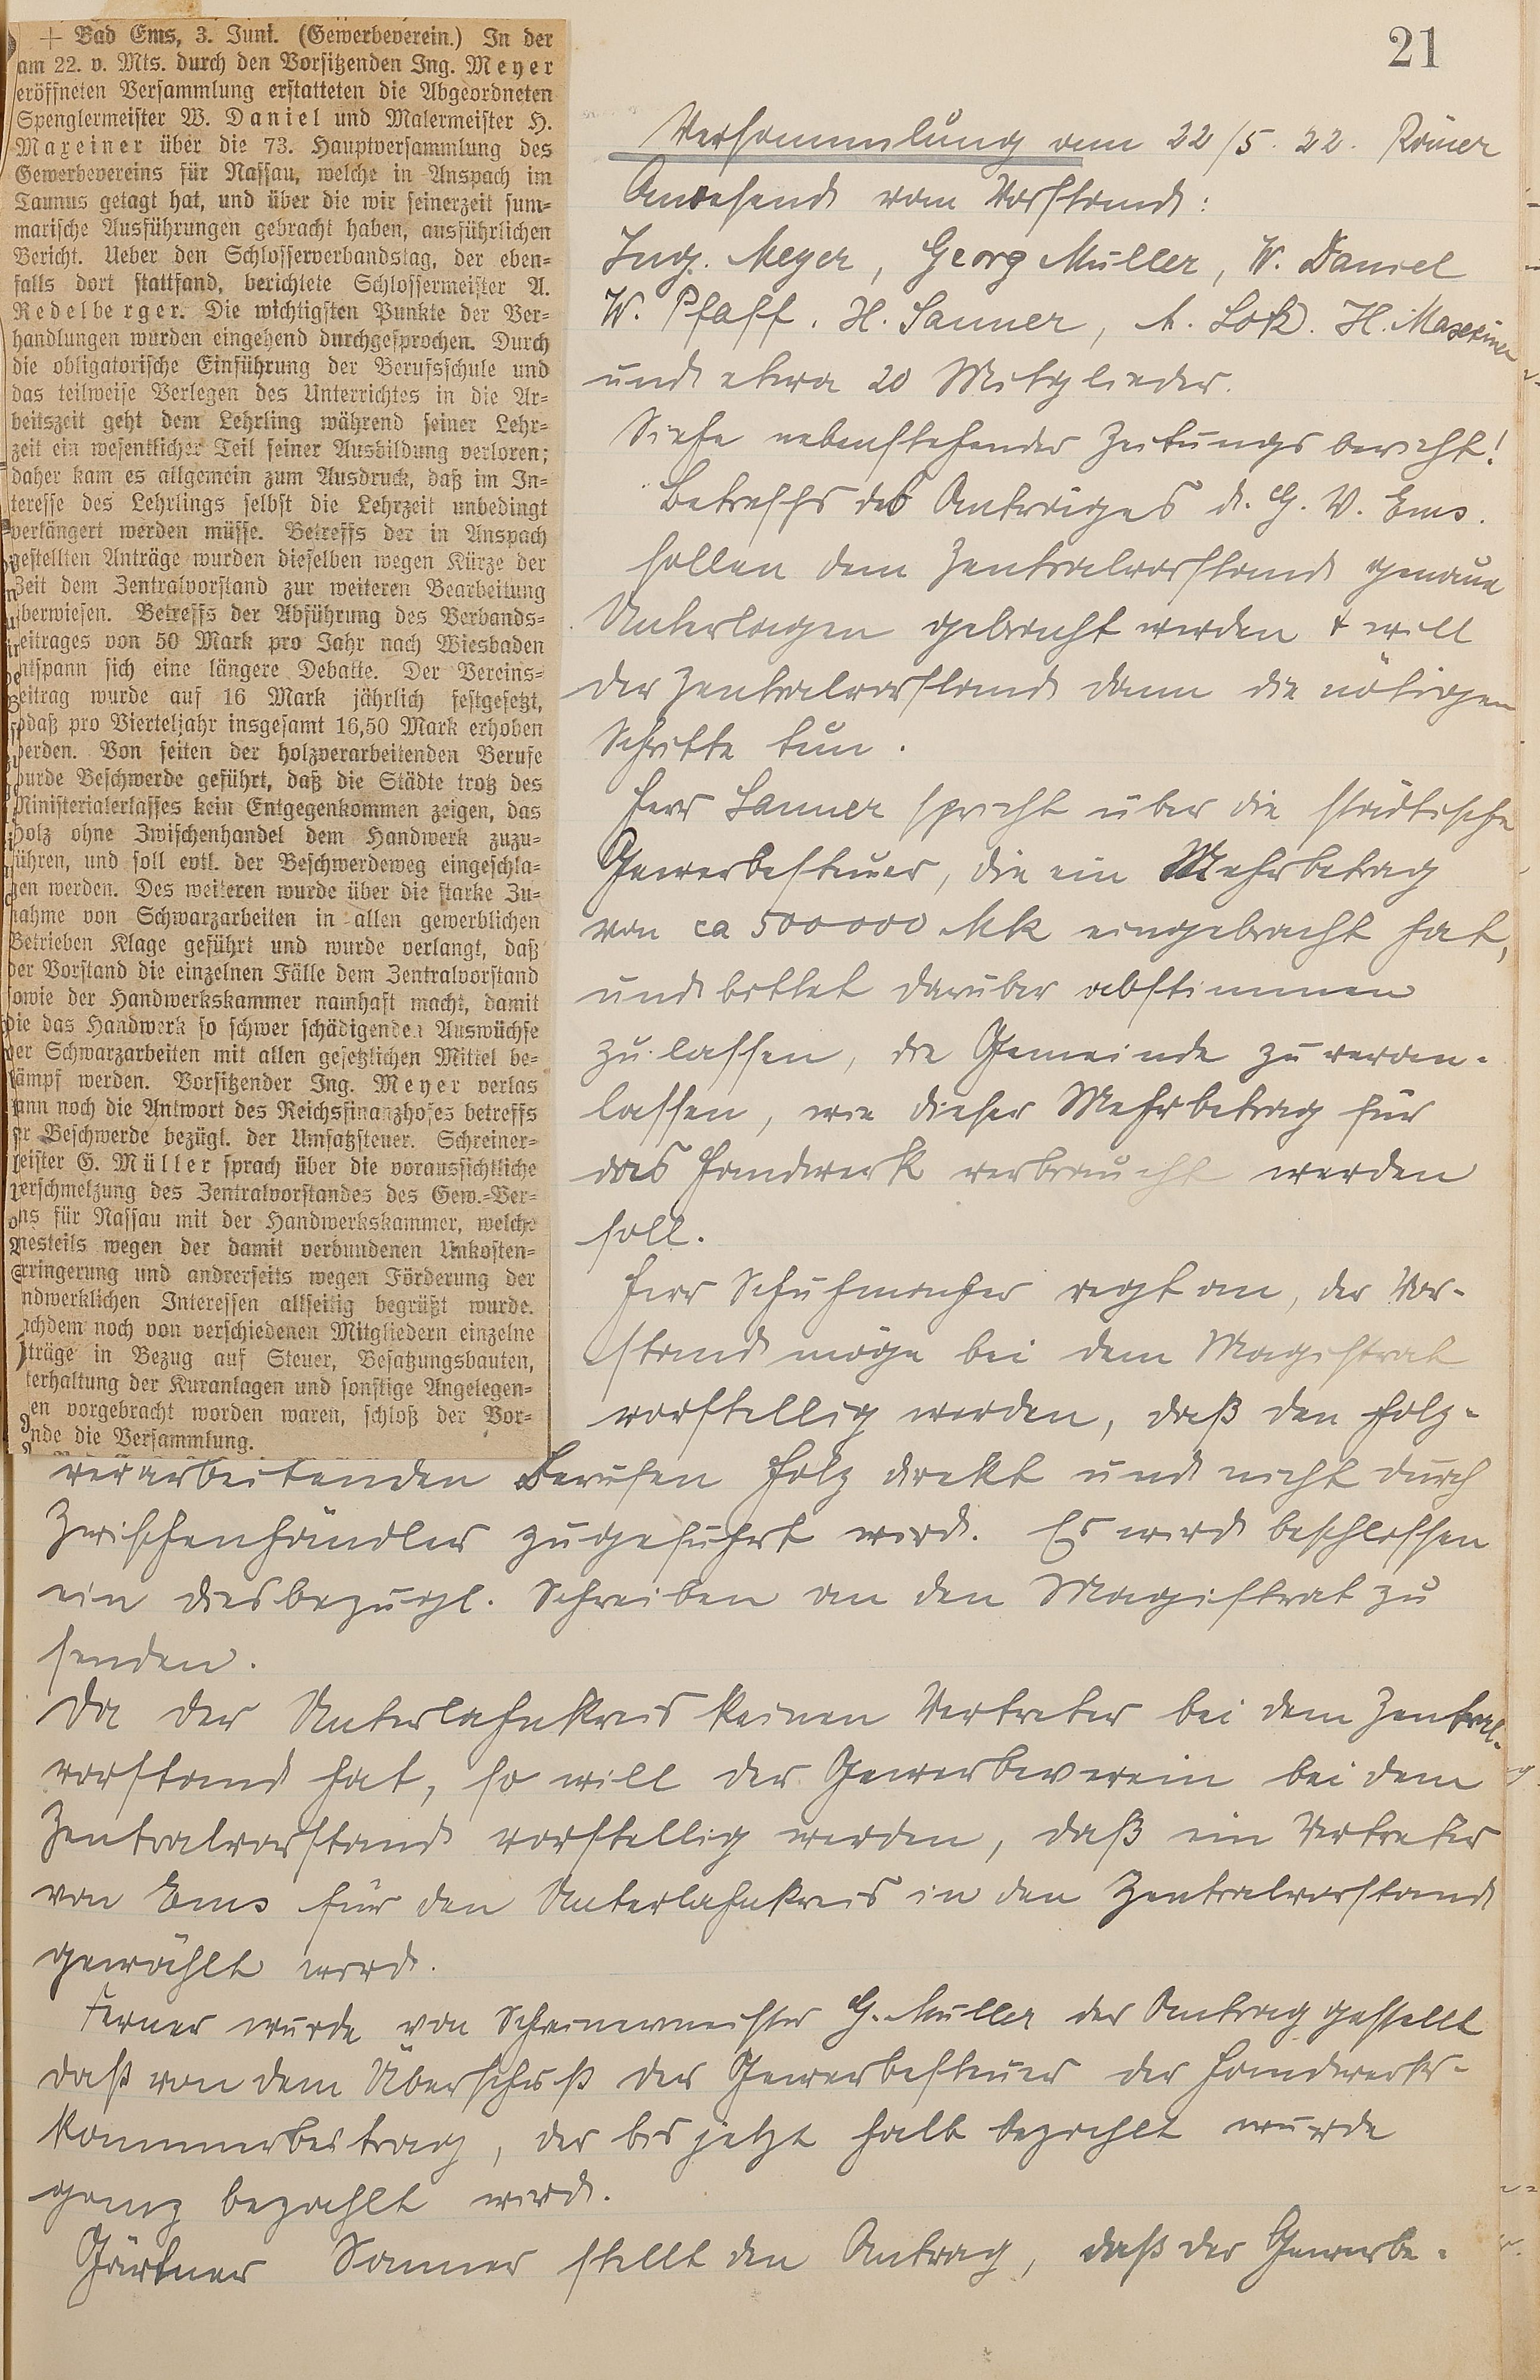 + Bad Ems, 3. Juni. (Gewerbeverein.) In der
am 22. v. Mts. durch den Vorsitzenden Ing. Meyer
eröffneten Versammlung erstatteten die Abgeordneten
Spenglermeister W. Daniel und Malermeister H.
Maxeiner über die 73. Hauptversammlung des
Gewerbevereins für Nassau, welche in Anspach im
Taunus getagt hat, und über die wir seinerzeit sum-
marische Ausführungen gebracht haben, ausführlichen
Bericht. Ueber den Schlosserverbandstag, der eben-
falls dort stattfand, berichtete Schlossermeister A.
Redelberger. Die wichtigsten Punkte der Ver-
handlungen wurden eingehend durchgesprochen. Durch
die obligatorische Einführung der Berufsschule und
das teilweise Verlegen des Unterrichtes in die Ar-
beitszeit geht dem Lehrling während seiner Lehr-
zeit ein wesentlicher Teil seiner Ausbildung verloren;
daher kam es allgemein zum Ausdruck, daß im In-
teresse des Lehrlings selbst die Lehrzeit unbedingt
verlängert werden müsse. Betreffs der in Anspach
gestellten Anträge wurden dieselben wegen Kürze der
Zeit dem Zentralvorstand zur weiteren Bearbeitung
überwiesen. Betreffs der Abführung des Verbands-
eitrages von 50 Mark pro Jahr nach Wiesbaden
ntspann sich eine längere Debatte. Der Vereins-
eitrag wurde auf 16 Mark jährlich festgesetzt,
odaß pro Vierteljahr insgesamt 16,50 Mark erhoben
erden. Von seiten der holzverarbeitenden Berufe
urde Beschwerde geführt, daß die Städte trotz des
Ministerialerlasses kein Entgegenkommen zeigen, das
Holz ohne Zwischenhandel dem Handwerk zuzu-
führen, und soll evtl. der Beschwerdeweg eingeschla-
gen werden. Des weiteren wurde über die starke Zu-
nahme von Schwarzarbeiten in allen gewerblichen
Betrieben Klage geführt und wurde verlangt, daß
der Vorstand die einzelnen Fälle dem Zentralvorstand
sowie der Handwerkskammer namhaft macht, damit
die das Handwerk so schwer schädigenden Auswüchse
der Schwarzarbeiten mit allen gesetzlichen Mittel be-
kämpf werden. Vorsitzender Ing. Meyer verlas
ann noch die Antwort des Reichsfinanzhofes betreffs
er Beschwerde bezügl. der Umsatzsteuer. Schreiner-
eister G. Müller sprach über die voraussichtliche
erschmelzung des Zentralvorstandes des Gew.-Ver-
ns für Nassau mit der Handwerkskammer, welche
nesteils wegen der damit verbundenen Unkosten-
rringerung und andrerseits wegen Förderung der
ndwerklichen Interessen allseitig begrüßt wurde.
achdem noch von verschiedenen Mitgliedern einzelne
träge in Bezug auf Steuer, Besatzungsbauten,
terhaltung der Kuranlagen und sonstige Angelegen-
en vorgebracht worden waren, schloß der Vor-
nde die Versammlung.
21
Versammlung am 22/5. 22. Römer
Anwesend vom Vorstand:
Ing. Meyer, Georg Müller, W. Daniel
W. Pfaff. H. Sanner, A. Lotz. H. Maxeiner
und etwa 20 Mitglieder.
Siehe nebenstehender Zeitungsbericht!
Betreffs des Antrages d. G. V. Ems.
sollen dem Zentralvorstand genaue
Unterlagen gebracht werden & will
der Zentralvorstand dann die nötigen
Schritte tun.
Herr Sanner spricht über die städtische
Gewerbesteuer, die ein Mehrbetrag
von ca 500000 Mk eingebracht hat,
und bittet darüber abstimmen
zu lassen, die Gemeinde zu veran-
lassen, wie dieser Mehrbetrag für
das Handwerk verbraucht werden
soll.
Herr Schuhmacher regt an, der Vor-
stand möge bei dem Magistrat
vorstellig werden, daß den holz-
verarbeitenden Berufen Holz direkt und nicht durch
Zwischenhändler zugeführt wird. Es wird beschlossen
ein diesbezügl. Schreiben an den Magistrat zu
senden.
Da der Unterlahnkreis keinen Vertreter bei dem Zentral-
vorstand hat, so will der Gewerbeverein bei dem
Zentralvorstand vorstellig werden, daß ein Vertreter
von Ems für den Unterlahnkreis in den Zentralvorstand
gewählt wird.
Ferner wurde von Schreinermeister G. Müller der Antrag gestellt
daß von dem Überschuß der Gewerbesteuer der Handwerks-
kammerbeitrag, der bis jetzt halb bezahlt wurde
ganz bezahlt wird.
Gärtner Sanner stellt den Antrag, daß der Gewerbe-